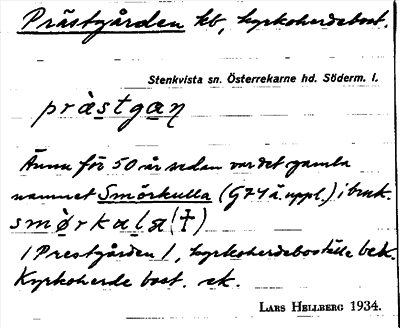 Prästgården kb, kyrkoherdebost.
Stenkvista sn. Österrekarne hd. Söderm. l.
prästgaɳ
Ännu för 50 år sedan var det gamla
namnet Smörkulla (G 74 å. uppl.) i bruk.
smørkula (†)
/ Prestgården /, kyrkoherdeboställe bek.
Kyrkoherde bost. ek.
LARS HELLBERG 1934.